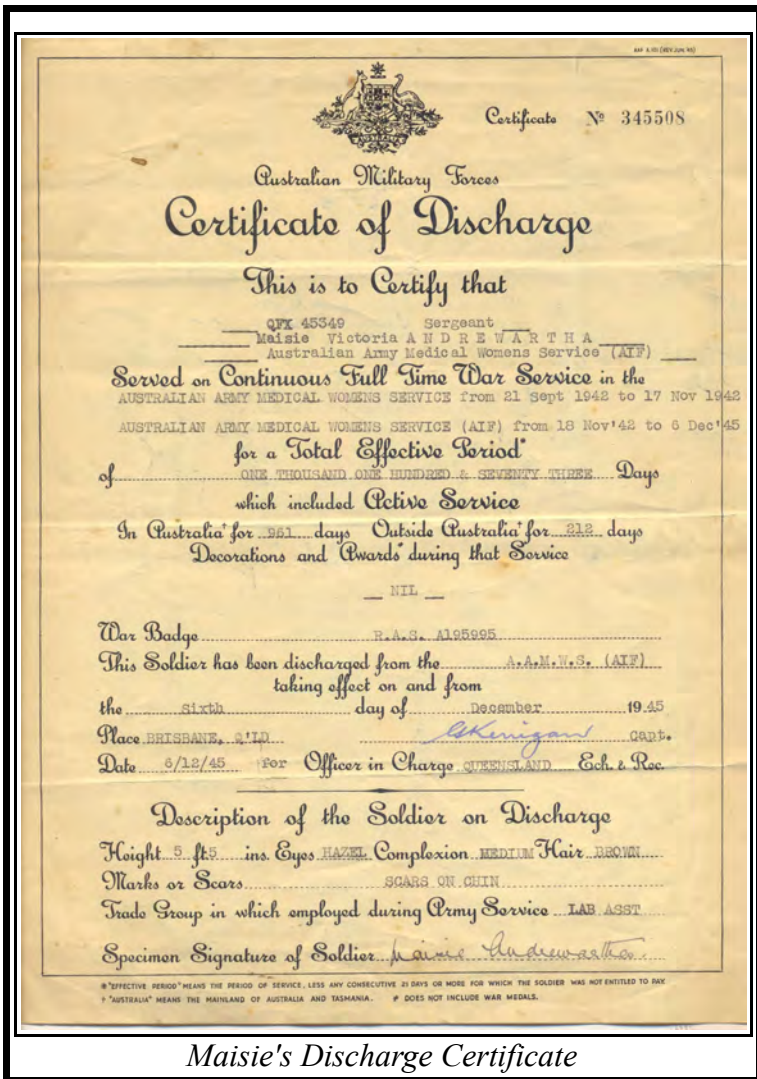 AAF A 151 (REV. JUN. 45)
Certificate № 345508
Australian Military Forces
Certificate of Discharge
This is to Certify that
QFX 45349 Sergeant
Maisie Victoria A N D R E W A R T H A
Australian Army Medical Womens Service (AIF)
Served on Continuous Full Time War Service in the
AUSTRALIAN ARMY MEDICAL WOMENS SERVICE from 21 Sept 1942 to 17 Nov 1942
AUSTRALIAN ARMY MEDICAL WOMENS SERVICE (AIF) from 18 Nov'42 to 6 Dec'45
for a Total Effective Period*
of ONE THOUSAND ONE HUNDRED & SEVENTY THREE Days
which included Active Service
In Australia† for 961 days Outside Australia† for 212 days
Decorations and Awards≠ during that Service
NIL
War Badge R.A.S. A195995
This Soldier has been discharged from the A.A.M.W.S. (AIF)
taking effect on and from
the Sixth day of December 1945
Place BRISBANE, Q'LD Capt.
Date 6/12/45 for Officer in Charge QUEENSLAND Ech. & Rec.
Description of the Soldier on Discharge
Height 5 ft. 5 ins. Eyes HAZEL Complexion MEDIUM Hair BROWN
Marks or Scars SCARS ON CHIN
Trade Group in which employed during Army Service LAB ASST
Specimen Signature of Soldier Maisie Andrewartha
* "EFFECTIVE PERIOD" MEANS THE PERIOD OF SERVICE, LESS ANY CONSECUTIVE 21 DAYS OR MORE FOR WHICH THE SOLDIER WAS NOT ENTITLED TO PAY.
† "AUSTRALIA" MEANS THE MAINLAND OF AUSTRALIA AND TASMANIA. ≠ DOES NOT INCLUDE WAR MEDALS.
Maisie's Discharge Certificate